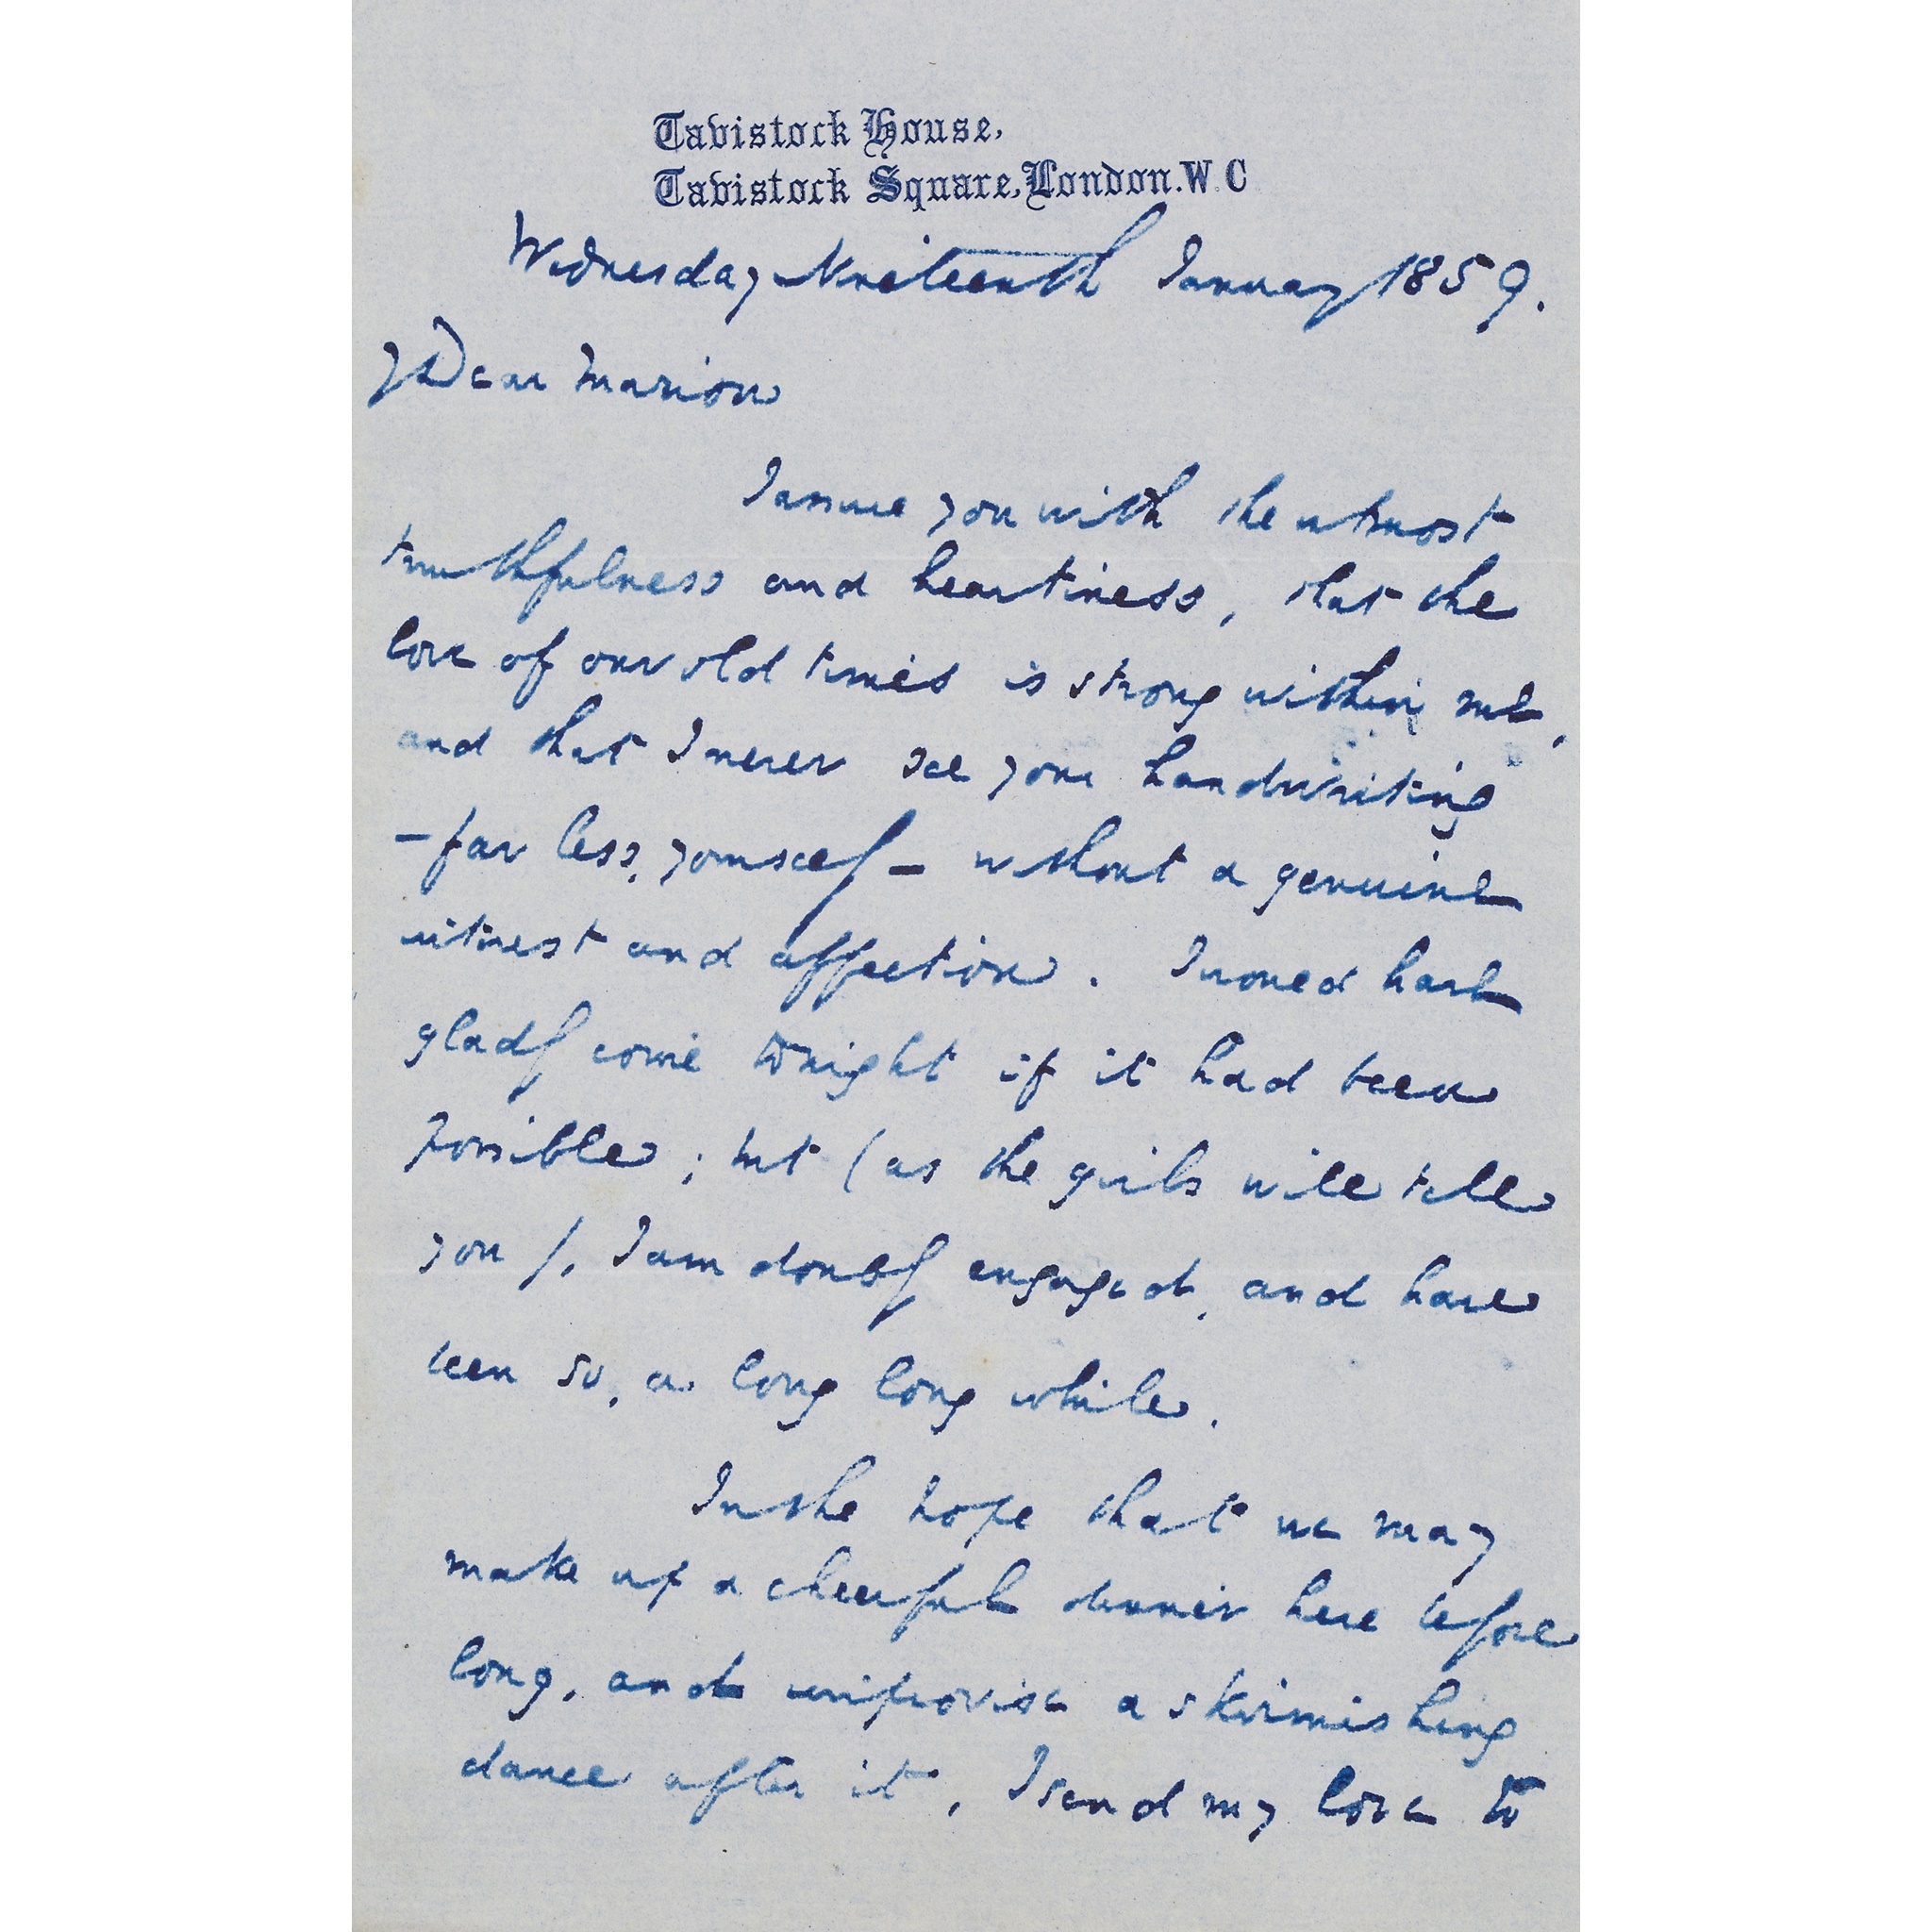 Tavistock House,
Tavistock Square, London. W C
Wednesday Nineteenth January 1859.
My Dear Marion
I assure you with the utmost
truthfulness and heartiness, that the
love of our old times is strong within me,
and that I never see your handwriting
– far less, yourself – without a genuine
interest and affection. I would have
gladly come tonight if it had been
possible; but (as the girls will tell
you), I am doubly engaged, and have
been so, a long long while.
In the hope that we may
make up a cheerful dinner here before
long, and improvise a skirmishing
dance after it, I send my love to